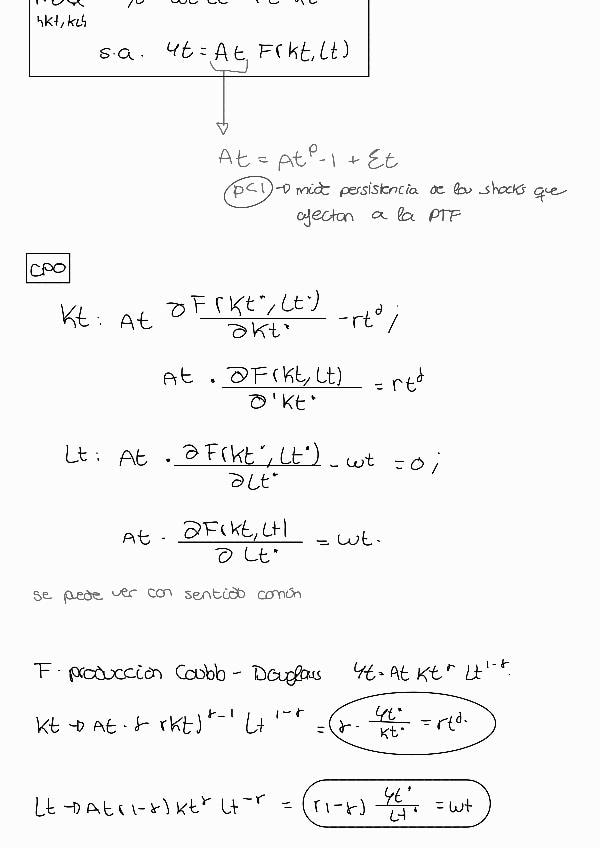 hKt, Kth
s.a. Yt = At F(Kt, Lt)
At = At^ρ-1 + Σt
ρ<1 → mide persistencia de los shocks que
afectan a la PTF
CPO
Kt: At ∂F(Kt*, Lt*)/∂Kt* - rt^d ;
At · ∂F(Kt, Lt)/∂'Kt* = rt^d
Lt: At · ∂F(Kt*, Lt*)/∂Lt* - wt = 0 ;
At · ∂F(Kt, Lt)/∂Lt* = wt.
se pede ver con sentido común
F. producción Coubb - Douglass Yt = At Kt^γ Lt^1-γ.
Kt → At · γ (Kt)^γ-1 Lt^1-γ = γ · Yt*/Kt* = rt^d.
Lt → At (1-γ) Kt^γ Lt^-γ = (1-γ) Yt*/Lt* = wt